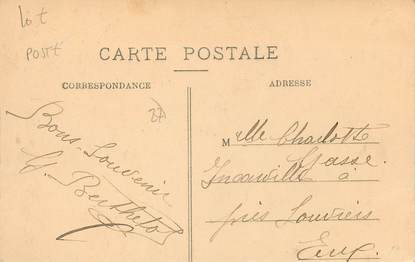 lot
POST
CARTE POSTALE
CORRESPONDANCE
ADRESSE
Bons Souvenir
G. Berthelot
Melle Charlotte
Gasse
Incarville à
près Louviers
Eure